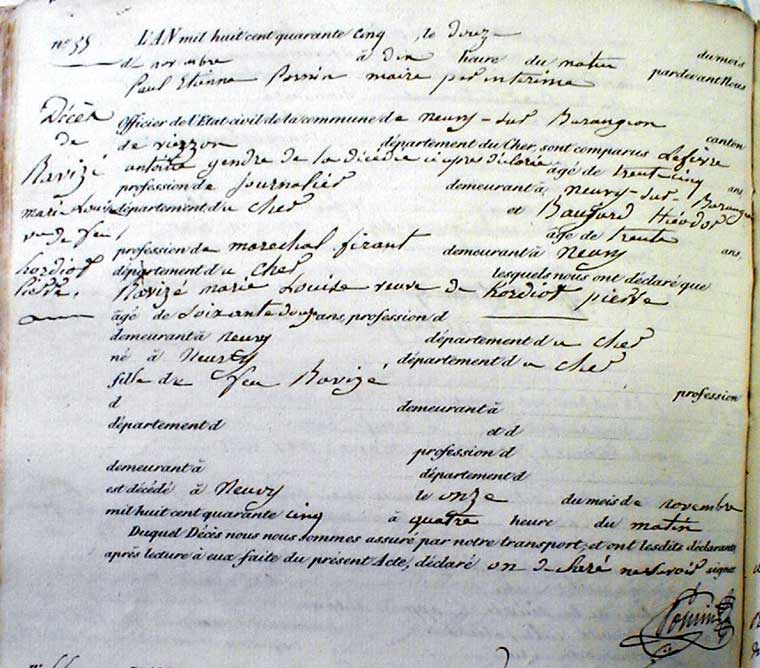 n° 55 L'AN mil huit cent quarante cinq, le douze du mois
de novembre à dix heure du matin pardevant Nous
Paul Etienne maire par interime
Officier de l'Etat civil de la commune de neuvy-sur Barangeon canton
de vierzon département du Cher, sont comparus Lefevre
antoine gendre de la décédée ci apres déclarée âgé de trente cinq ans
profession de journalier demeurant à neuvy-sur-Barangeon
département du cher et Théodor
profession de marechal ferant âgé de trente ans,
demeurant à neuvy
département du cher lesquels nous ont déclaré que
Ravizé marie Louise veuve de Kordiot pierre
âgé de soixante douze ans, profession d
demeurant à neuvy département du cher
né à Neuvy département du cher
fille de feu Ravizé profession
d demeurant à
département d et d
profession d
demeurant à département d
est décédé à Neuvy le onze du mois de novembre
mil huit cent quarante cinq à quatre heure du matin
Duquel Décès nous nous sommes assuré par notre transport, et ont lesdits déclarants
après lecture à eux faite du présent Acte, déclaré on declaré ne savoir signer
Décès
de
Ravizé
marie Louise
ve de feu
Kordiot
Pierre.